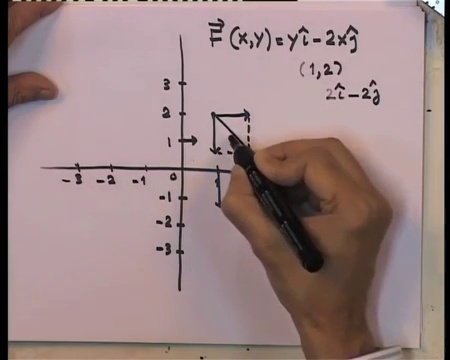 F⃗ (x,y) = yî - 2xĵ
(1,2)
2î - 2ĵ
3
2
1
-3 -2 -1 0 1
-1
-2
-3